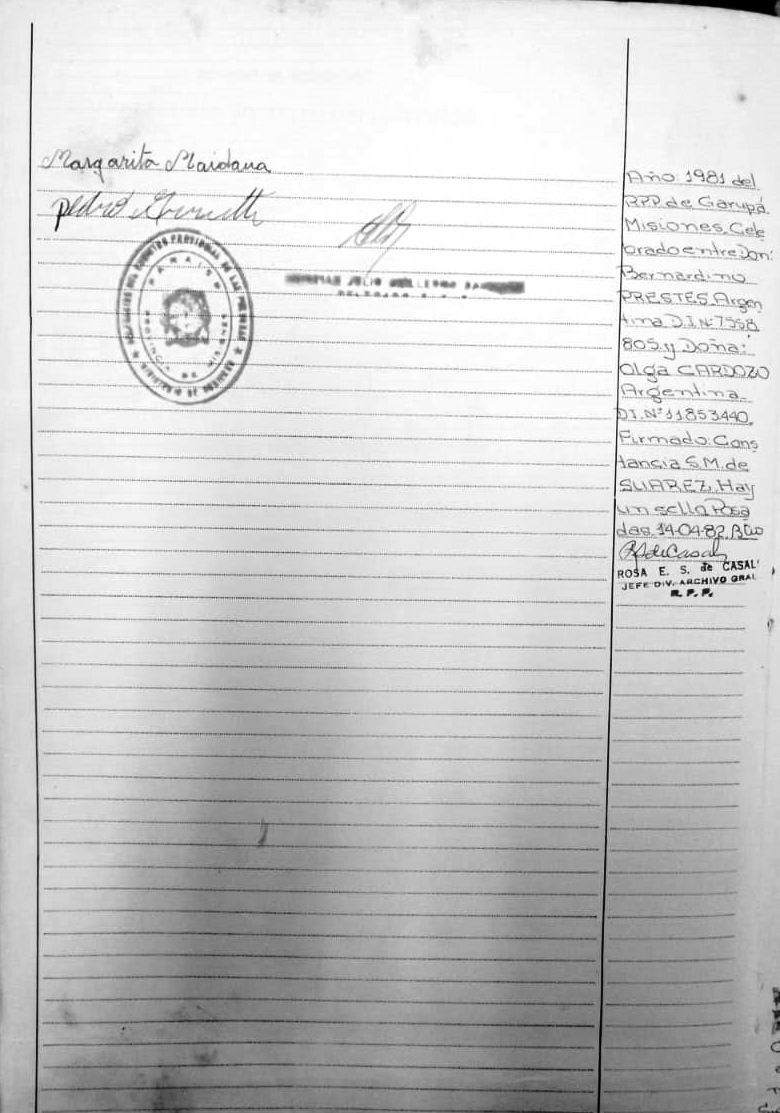 Margarita Maidana
pedro
PARAISO
JULIO GUILLERMO
DELEGADO R.P.P.
Año: 1981 del
RPP. de Garupá
Misiones, Cele
brado entre Don:
Bernardino
PRESTES, Argen
tina D.I.Nº 7.558
805. y Doña:
Olga CARDOZO
Argentina.
D.I.Nº 11.853.440.
Firmado: Cons
tancia S.M. de
SUAREZ, Hay
un sello. Posa
das, 14-04-82.
RSdeCasal
ROSA E. S. de CASAL
JEFE DIV. ARCHIVO GRAL
R. P. P.